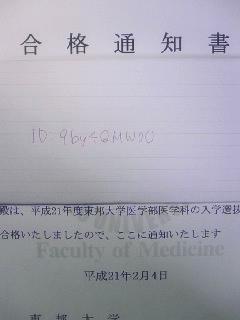 合格通知書
ID:9by+QMW20
殿は、平成21年度東邦大学医学部医学科の入学選抜
合格いたしましたので、ここに通知いたします
Faculty of Medicine
平成21年2月4日
東邦大学